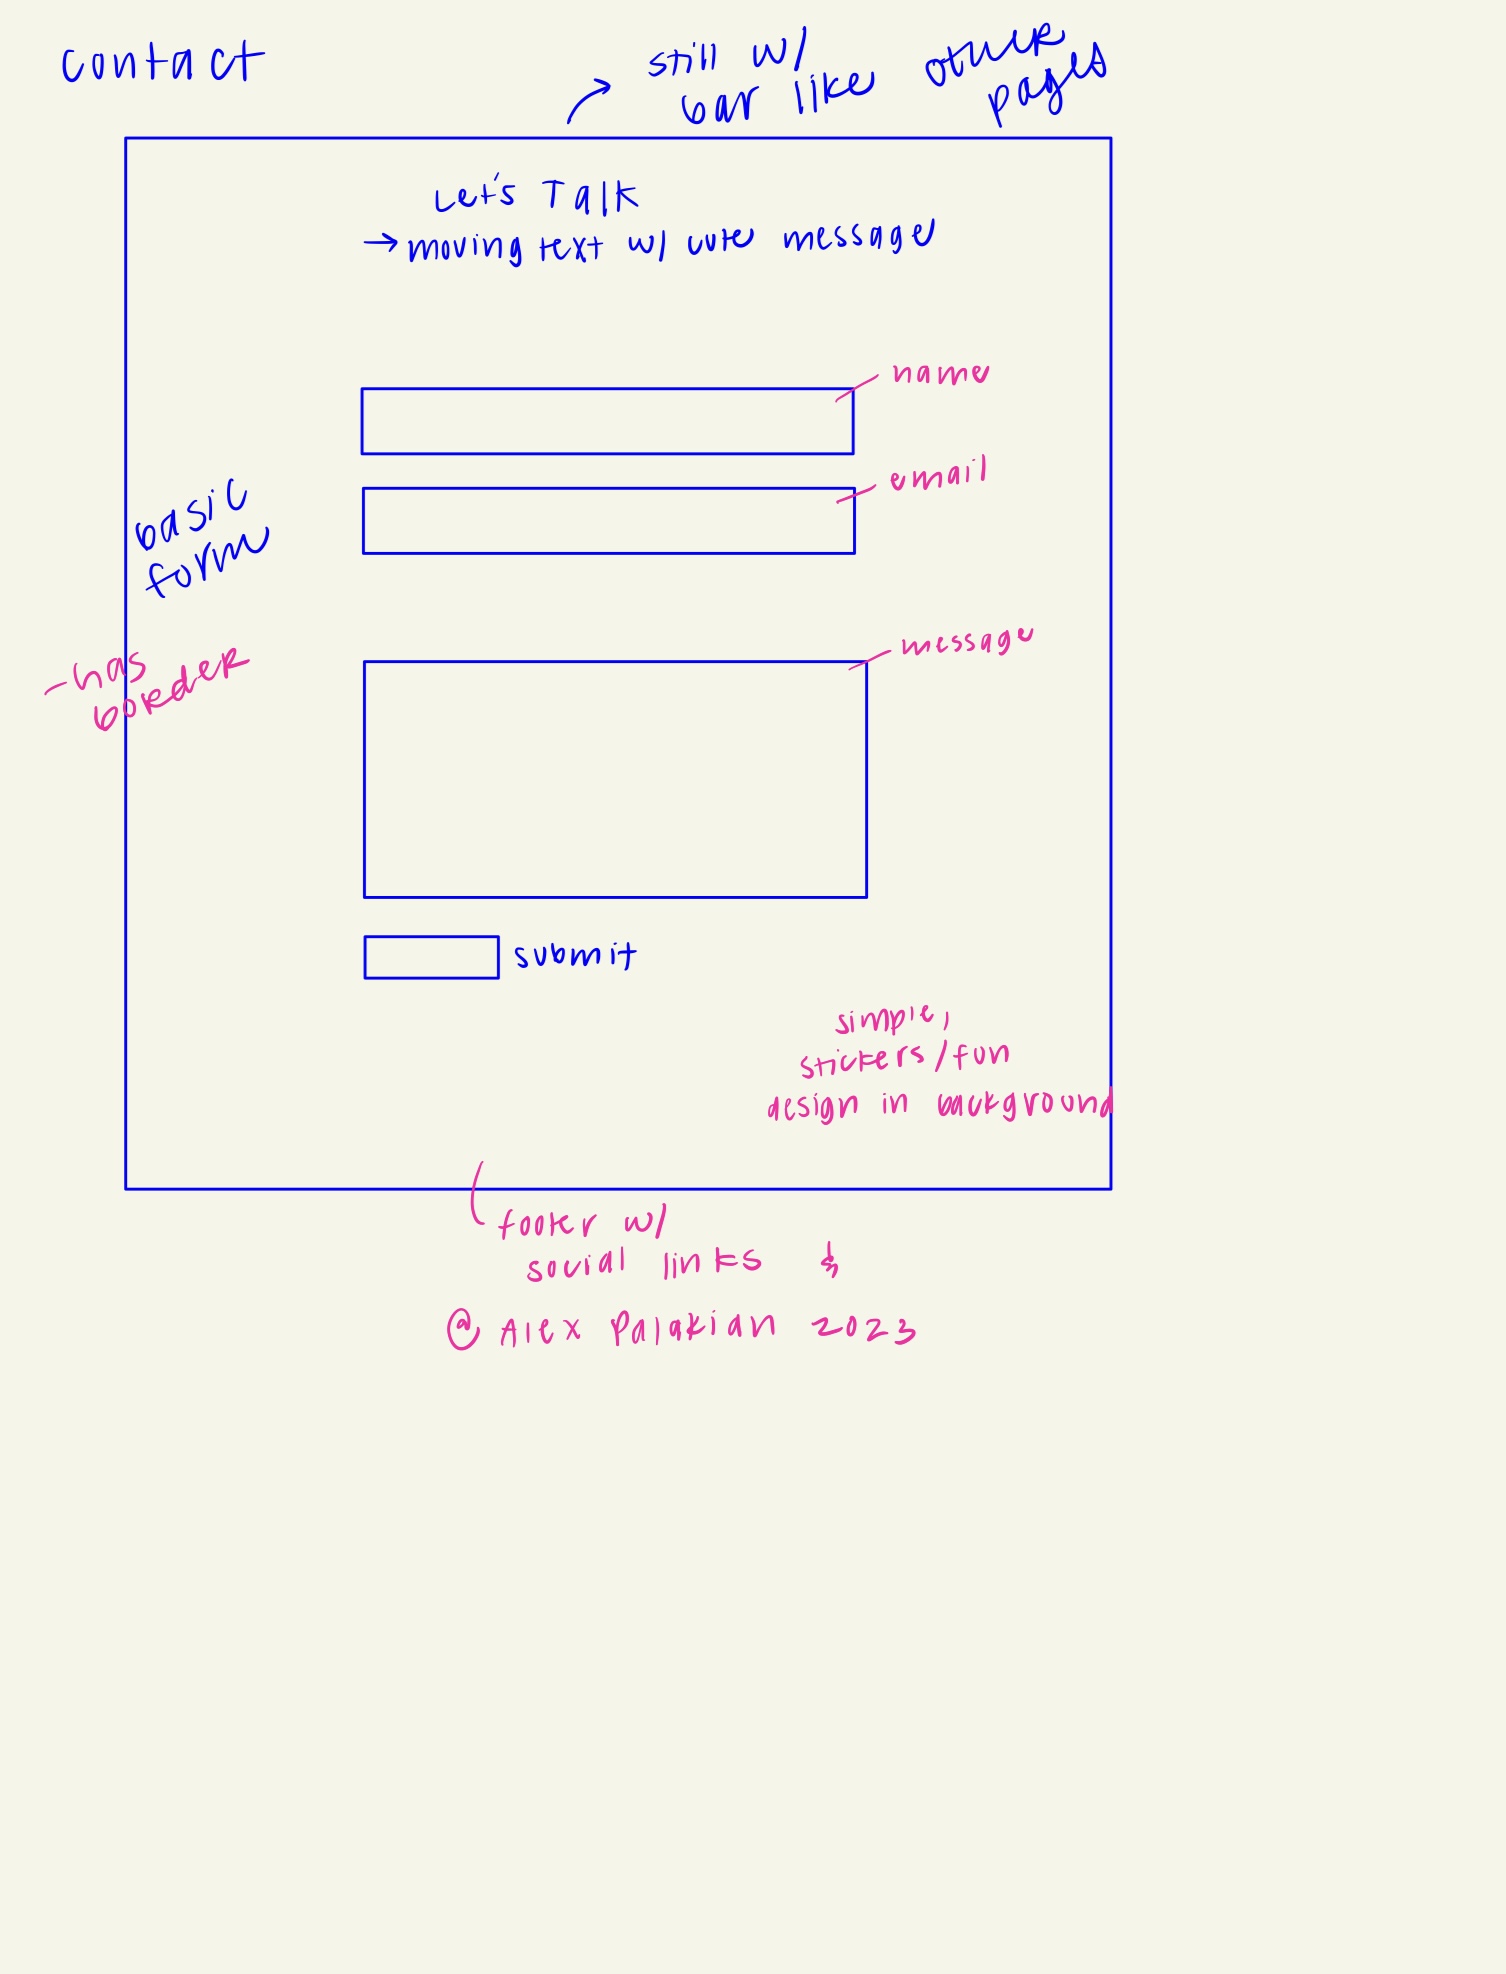 contact
still w/
bar like other
pages
Let's Talk
→ moving text w/ cute message
name
email
basic
form
message
- has
border
submit
simple,
stickers/fun
design in background
footer w/
social links &
@ Alex Palakian 2023